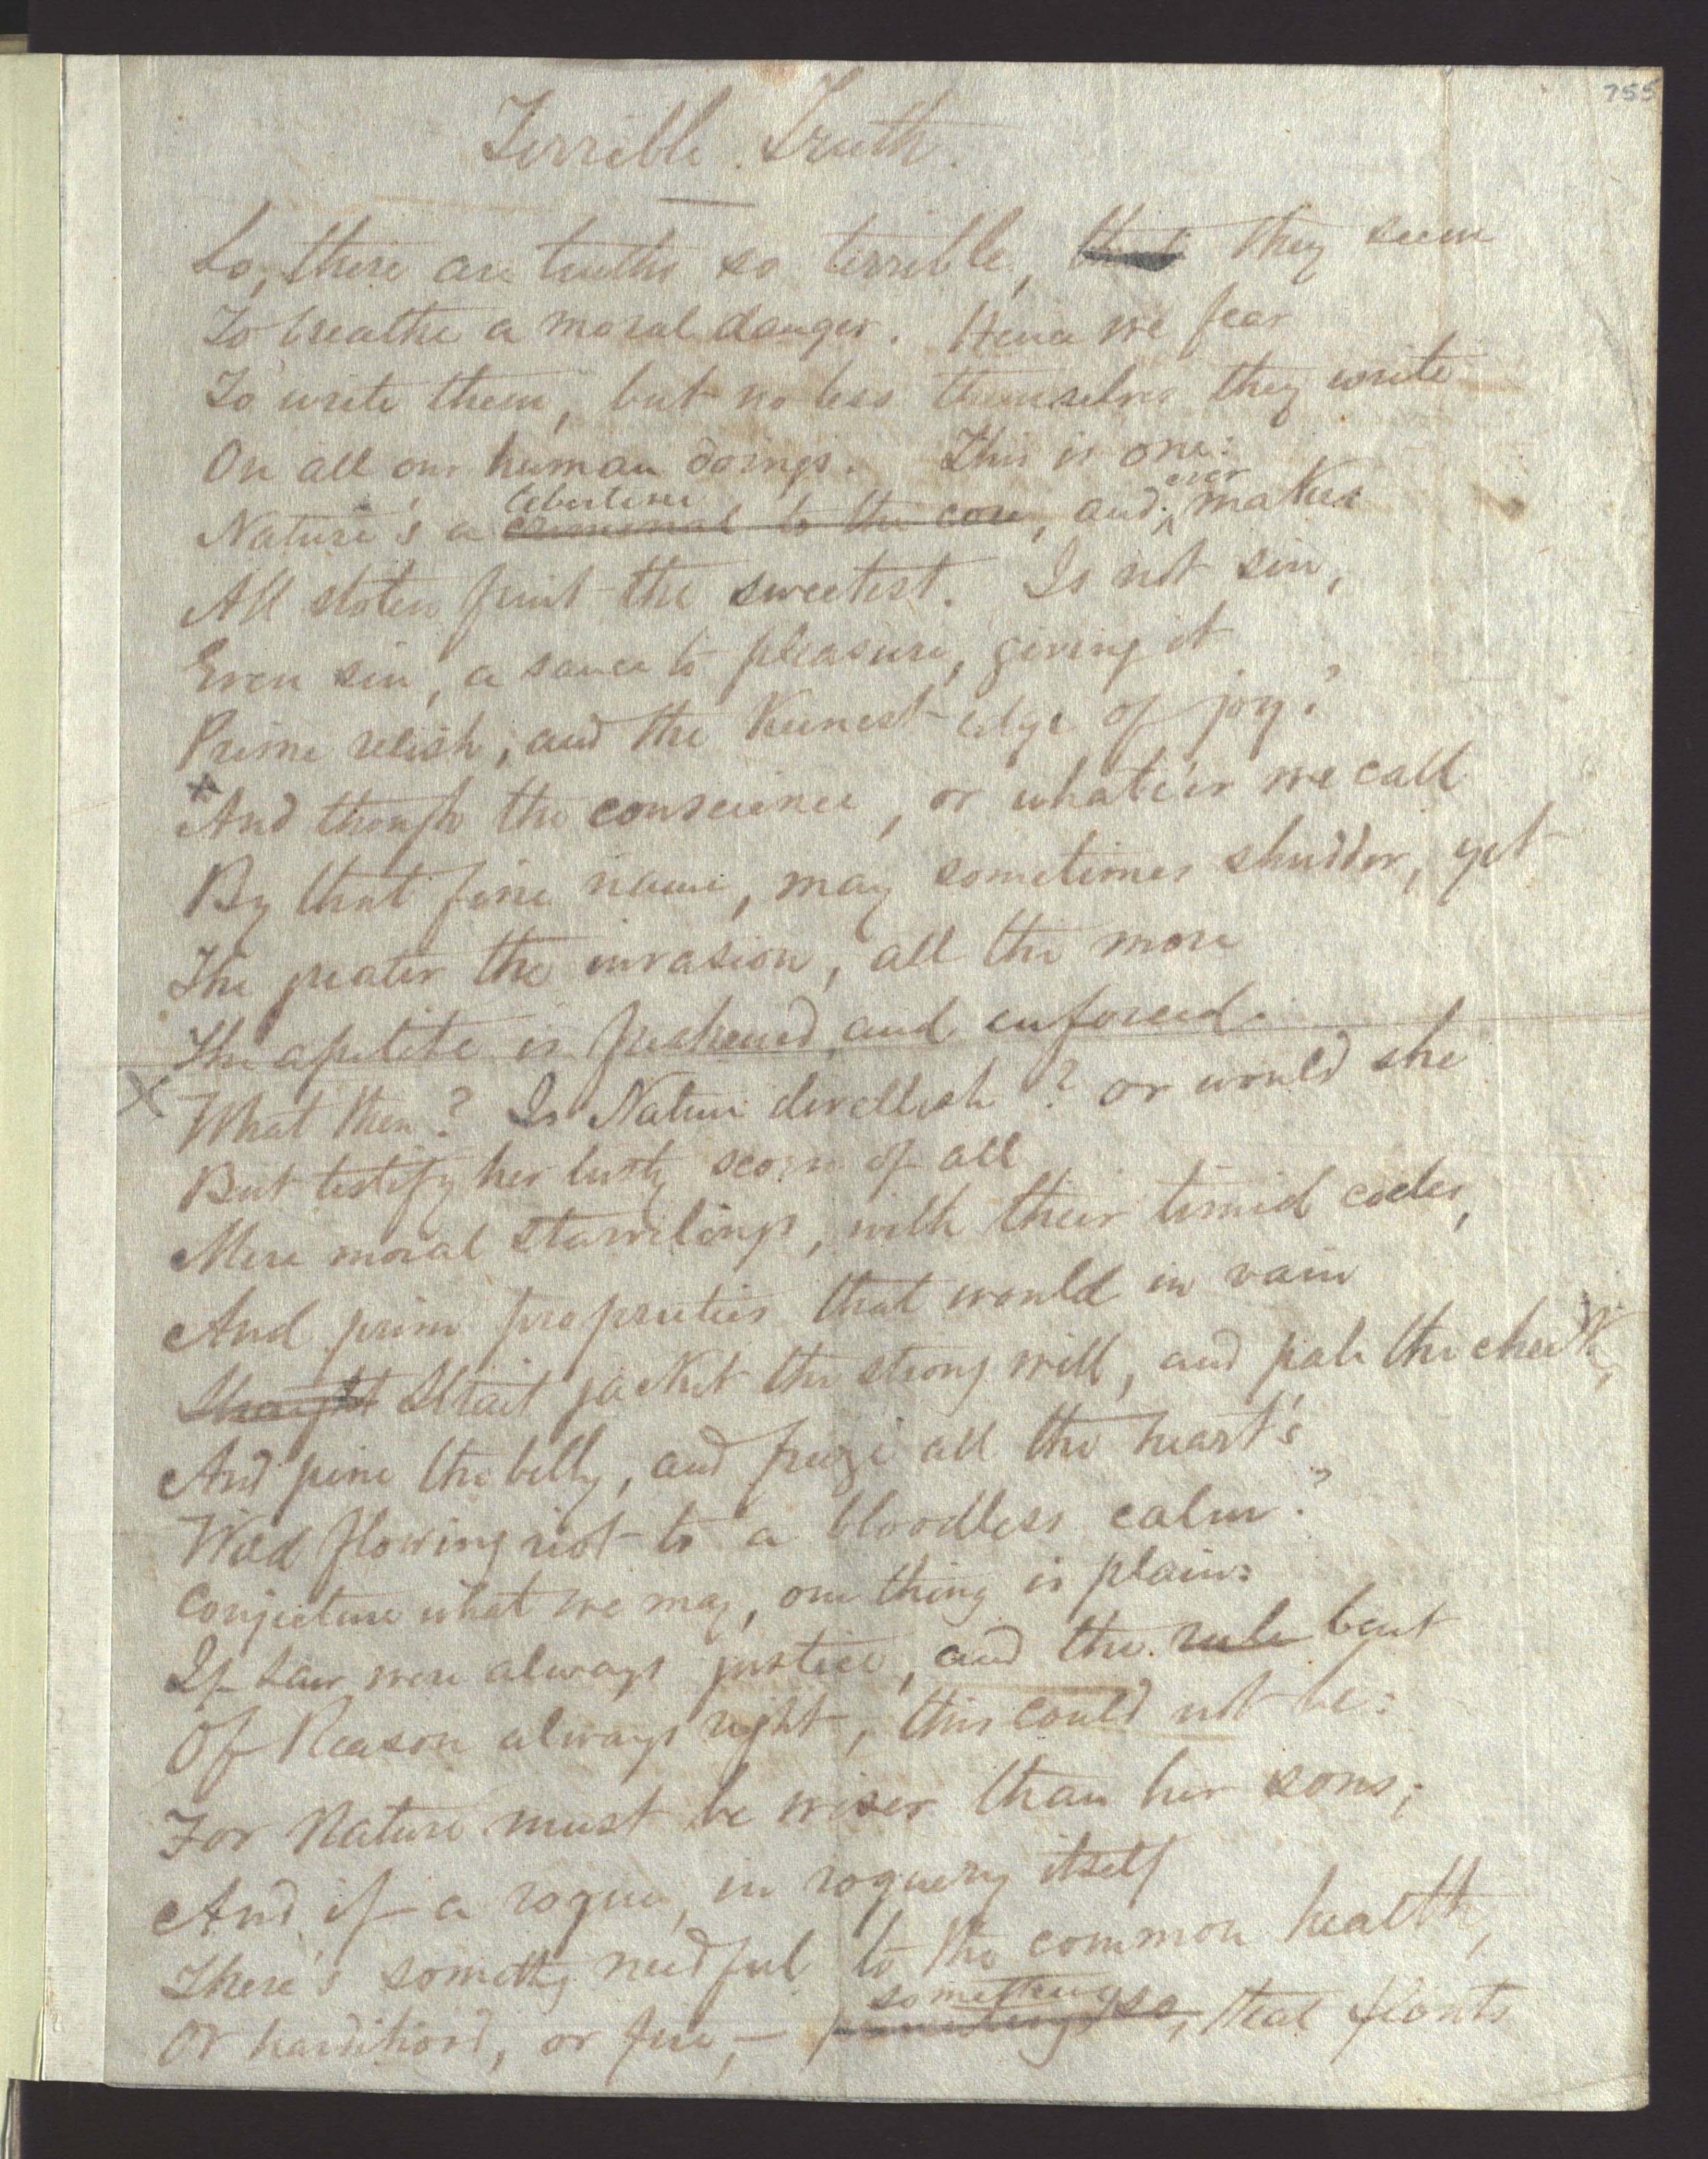 755
Terrible Truth.
Lo, there are truths so terrible, that they seem
To breathe a moral danger. Hence we fear
To write them, but no less themselves they write
On all our human doings. This is one:
libertine ever
Nature's a criminal to the core, and makes
All stolen fruit the sweetest. Is not sin,
Even sin, a sauce to pleasure, giving it
Prime relish, and the keenest edge of joy?
And though the conscience, or whate'er we call
By that fine name, may sometimes shudder, yet
The greater the invasion, all the more
The apetite is freshened and enforced.
What then? Is Nature devellish? or would she
But testify her lusty scorn of all
Mere moral starvelings, with their timid codes,
And prim proprieties that would in vain
Straight Strait jacket the strong will, and pale the cheek,
And pine the belly, and freeze all the heart's
Wild flowing riot to a bloodless calm?
Conjecture what we may, one thing is plain:
If Law were always justice, and the rule bent
Of Reason always right, this could not be:
For Nature must be wiser than her sons;
And if a rogue, in roguery itself
There's somethg needful to the common health,
something
Or hardihood, or fire,— so, that flouts